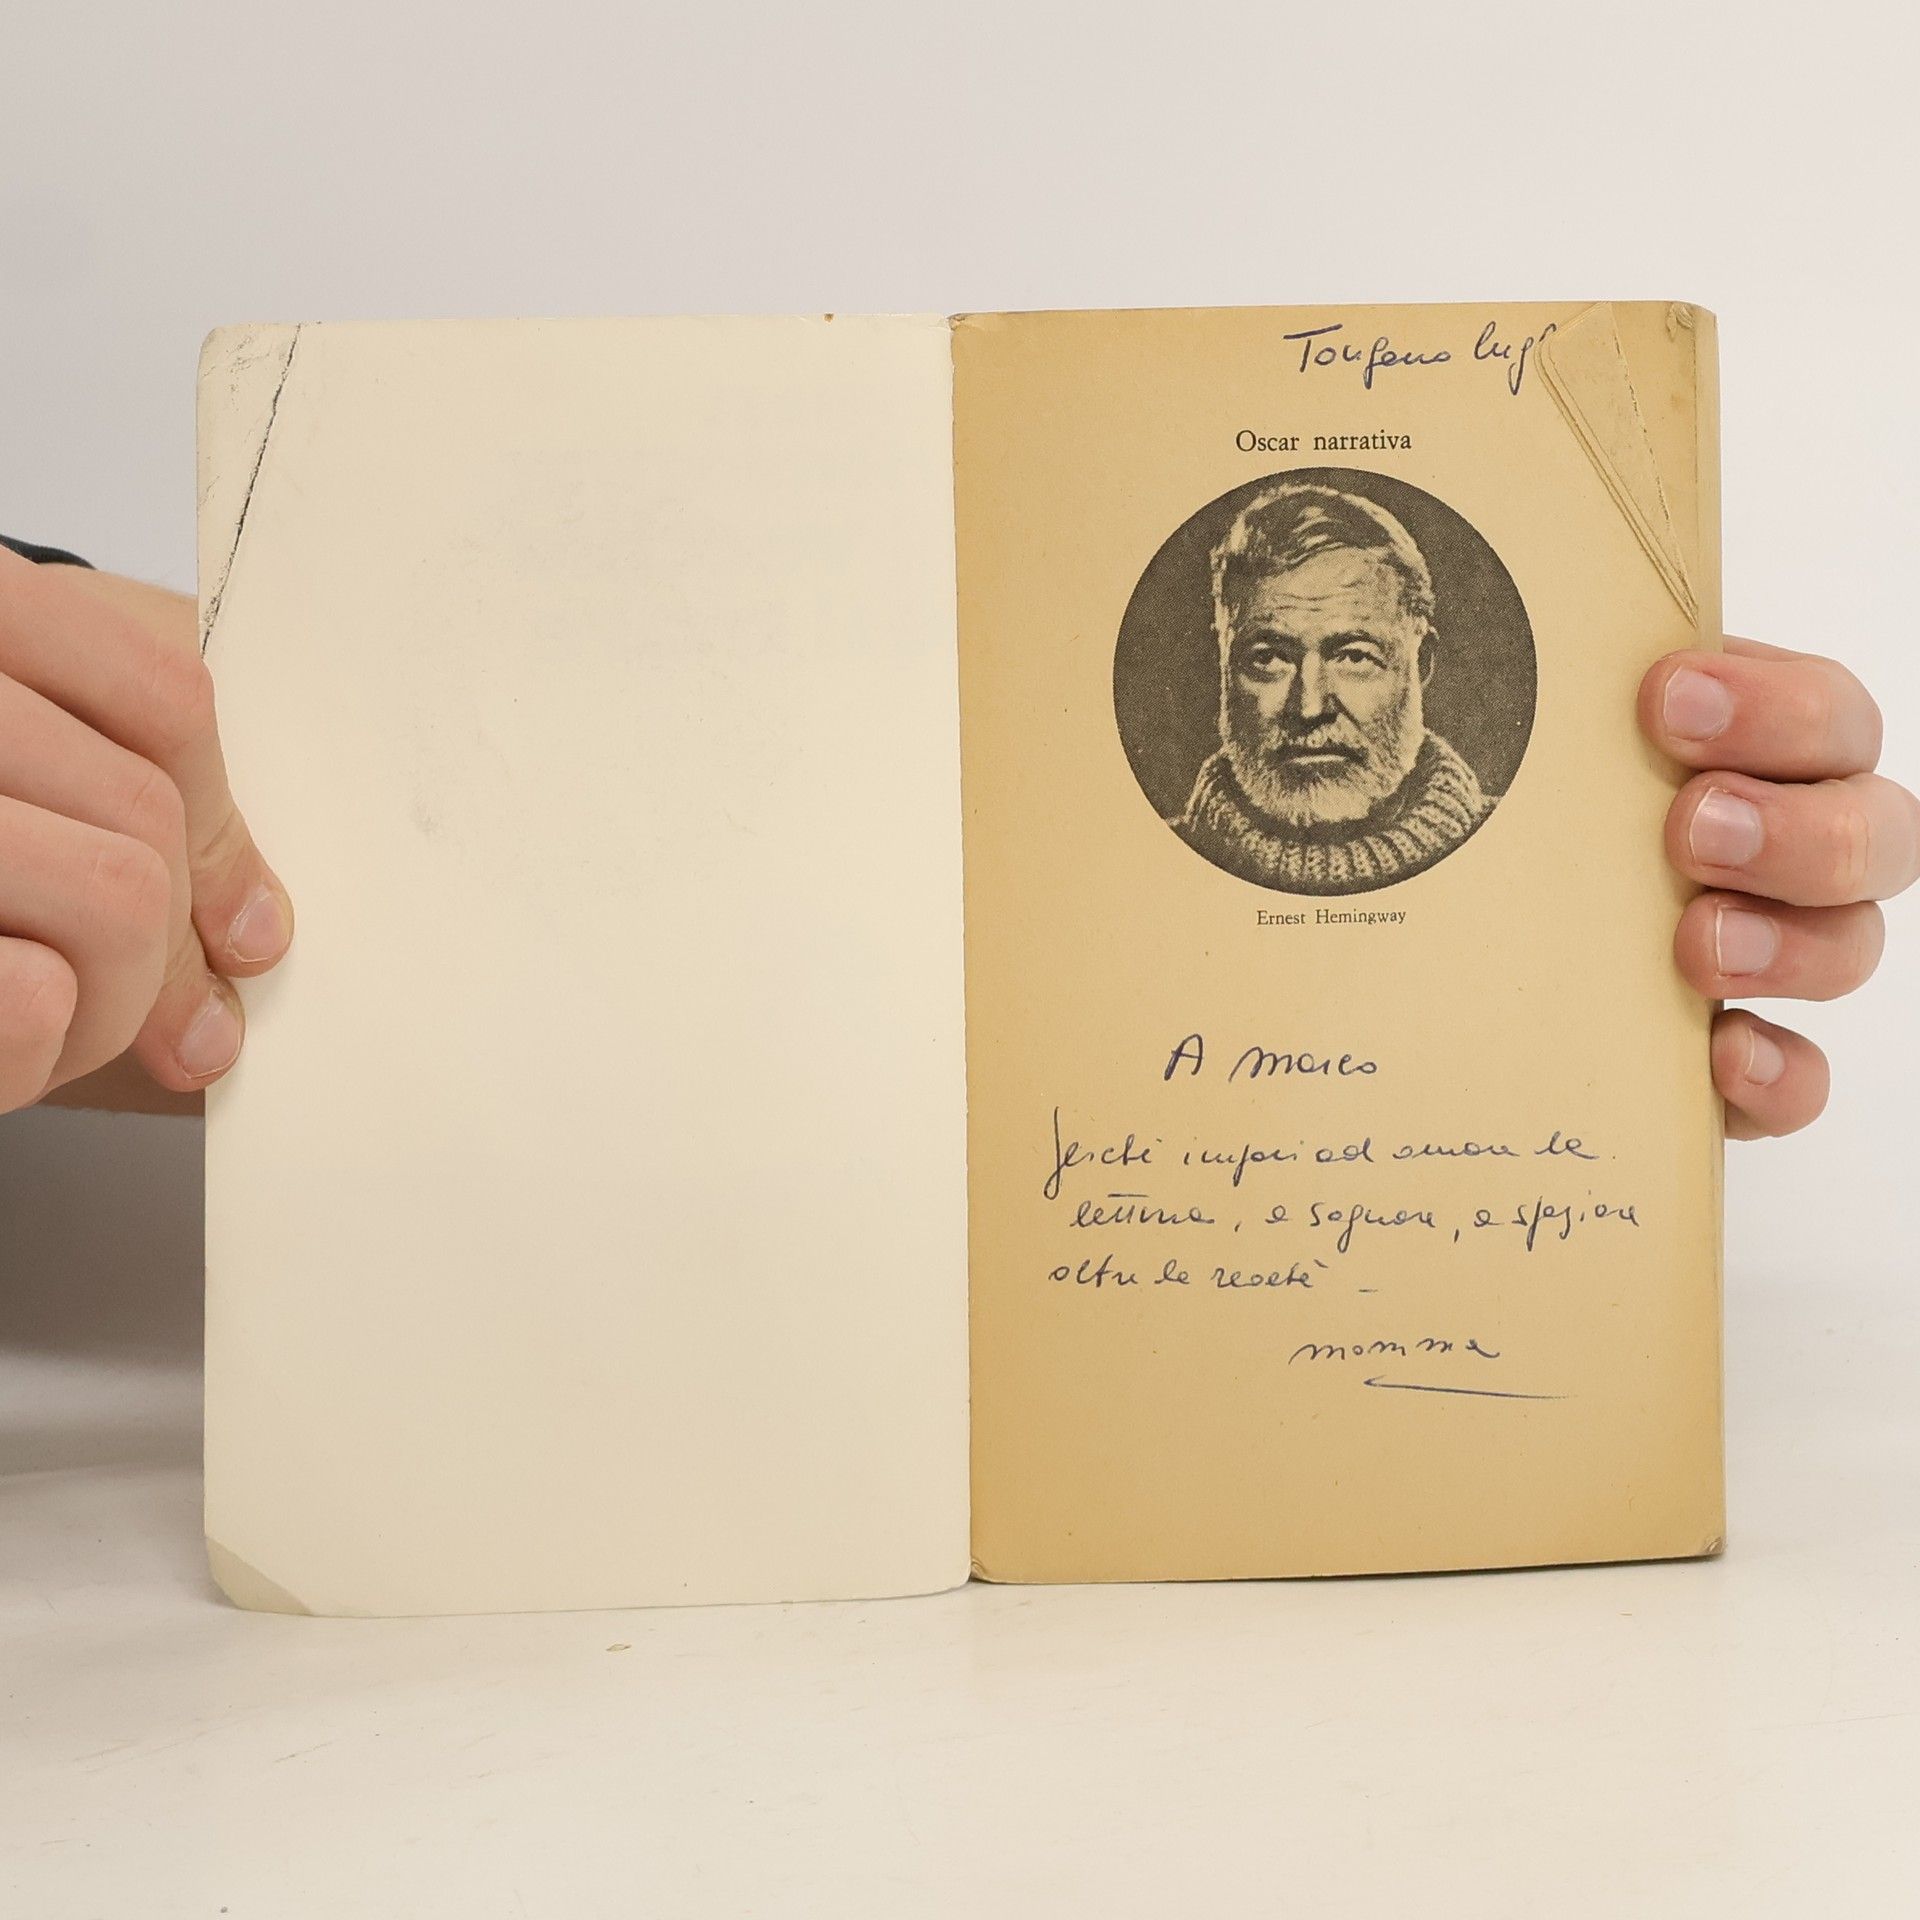 Oscar narrativa
Ernest Hemingway
A Marco
Perché impari ad amare la
lettura, a sognare, a spaziare
oltre la realtà –
mamma